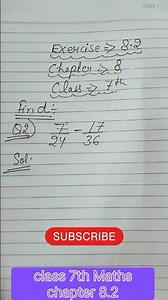 Date
Exercise ⇒ 8.2
Chapter ⇒ 8
Class ⇒ 7th
Find :-
Q2) 7/24 - 17/36
Sol.
SUBSCRIBE
class 7th Maths
chapter 8.2